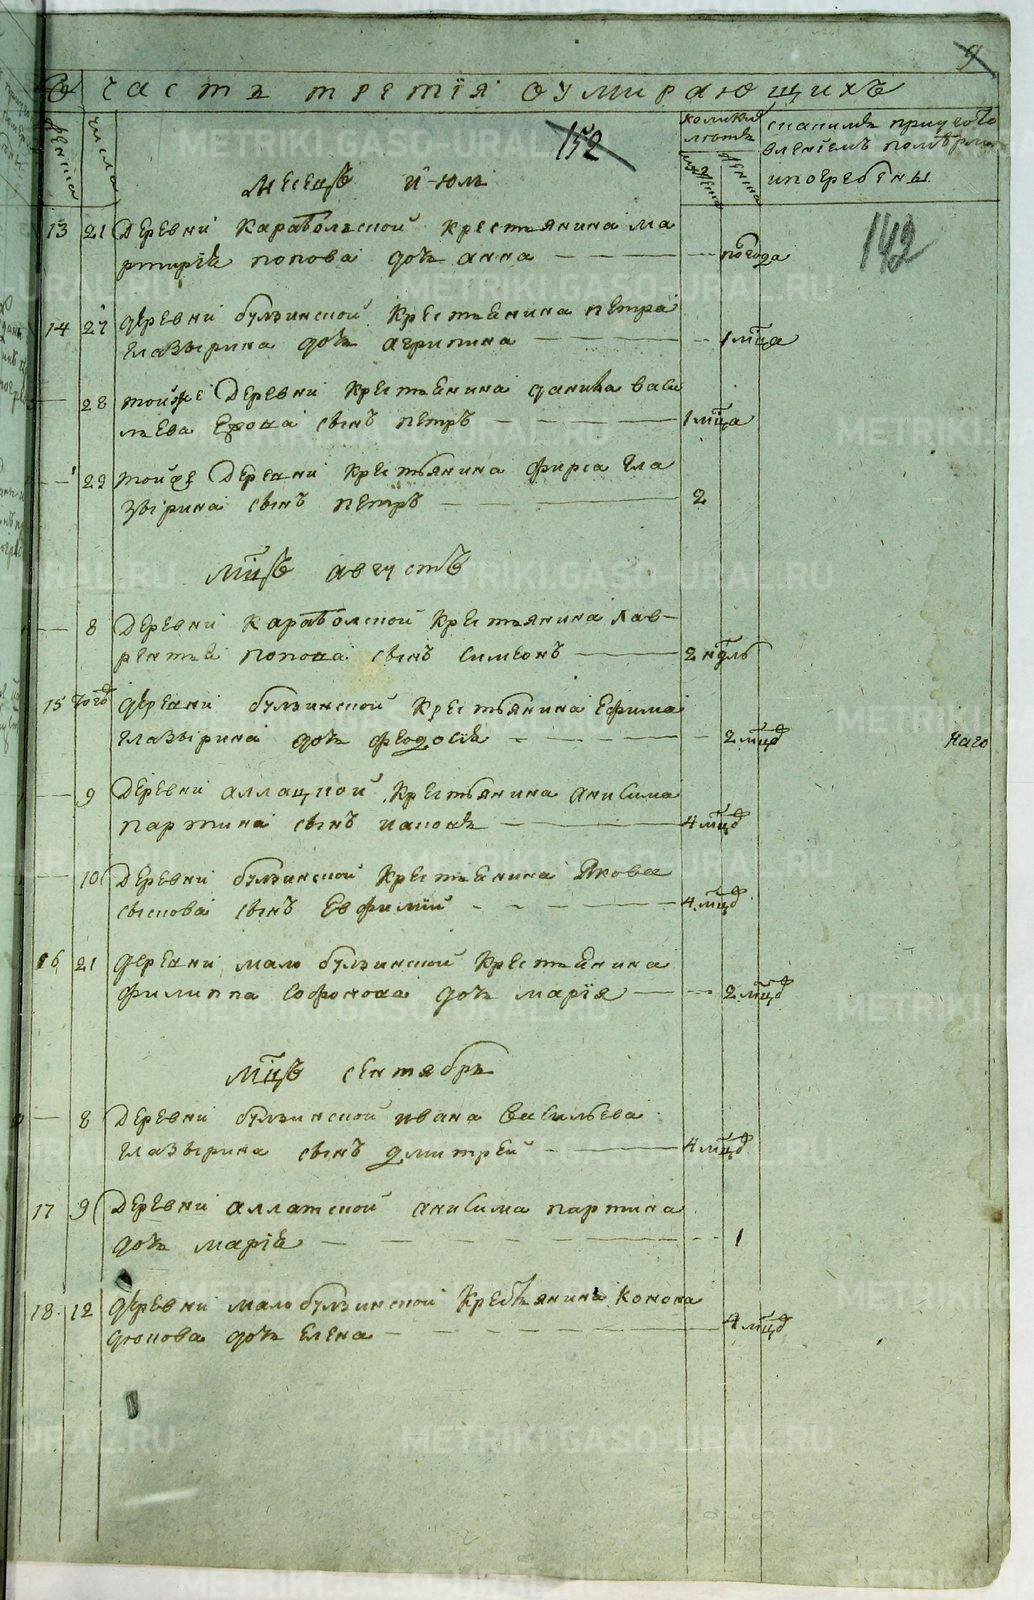 9
часть третїя оумирающихъ
женска
числа
152
коликих летъ
мужеска
женска
погребены
месецъ июль
142
13 21 Деревни Караболской крестьянина Ма
ртирїя Попова дочь Анна — полгода
14 27 деревни булзинской крестьянина Петра
Глазырина дочь Агрипина — 1 мца
— 28 тойже Деревни крестьянина Данила Васи
льева сынъ Петръ — 1 мца
— 29 тойже Деревни крестьянина Фирса Гла
зырина сынъ Петръ — 2
мцъ августъ
— 8 Деревни Караболской крестьянина Лав-
рентья Попова сынъ Симеонъ — 2 недль
15 тогожъ деревни булзинской крестьянина Ефима
Глазырина дочь Феодосїя — 2 мцъ
наго
— 9 Деревни аллацкой крестьянина Анисима
Партина сынъ Иаковъ — 4 мцъ
— 10 Деревни булзинской крестьянина Якова
Сыскова сынъ Евфимїй — 4 мцъ
16 21 деревни мало булзинской крестьянина
Филиппа Софонова дочь Марїя — 2 мцъ
мцъ сентябрь
— 8 Деревни булзинской Ивана Васильева
Глазырина сынъ Дмитрей — 4 мцъ
17 9 Деревни аллатской Анисима Партина
дочь Марїя — 1
18 12 деревни мало булзинской крестьянина Конона
дочь Елена — 4 мцъ
METRIKI.GASO-URAL.RU